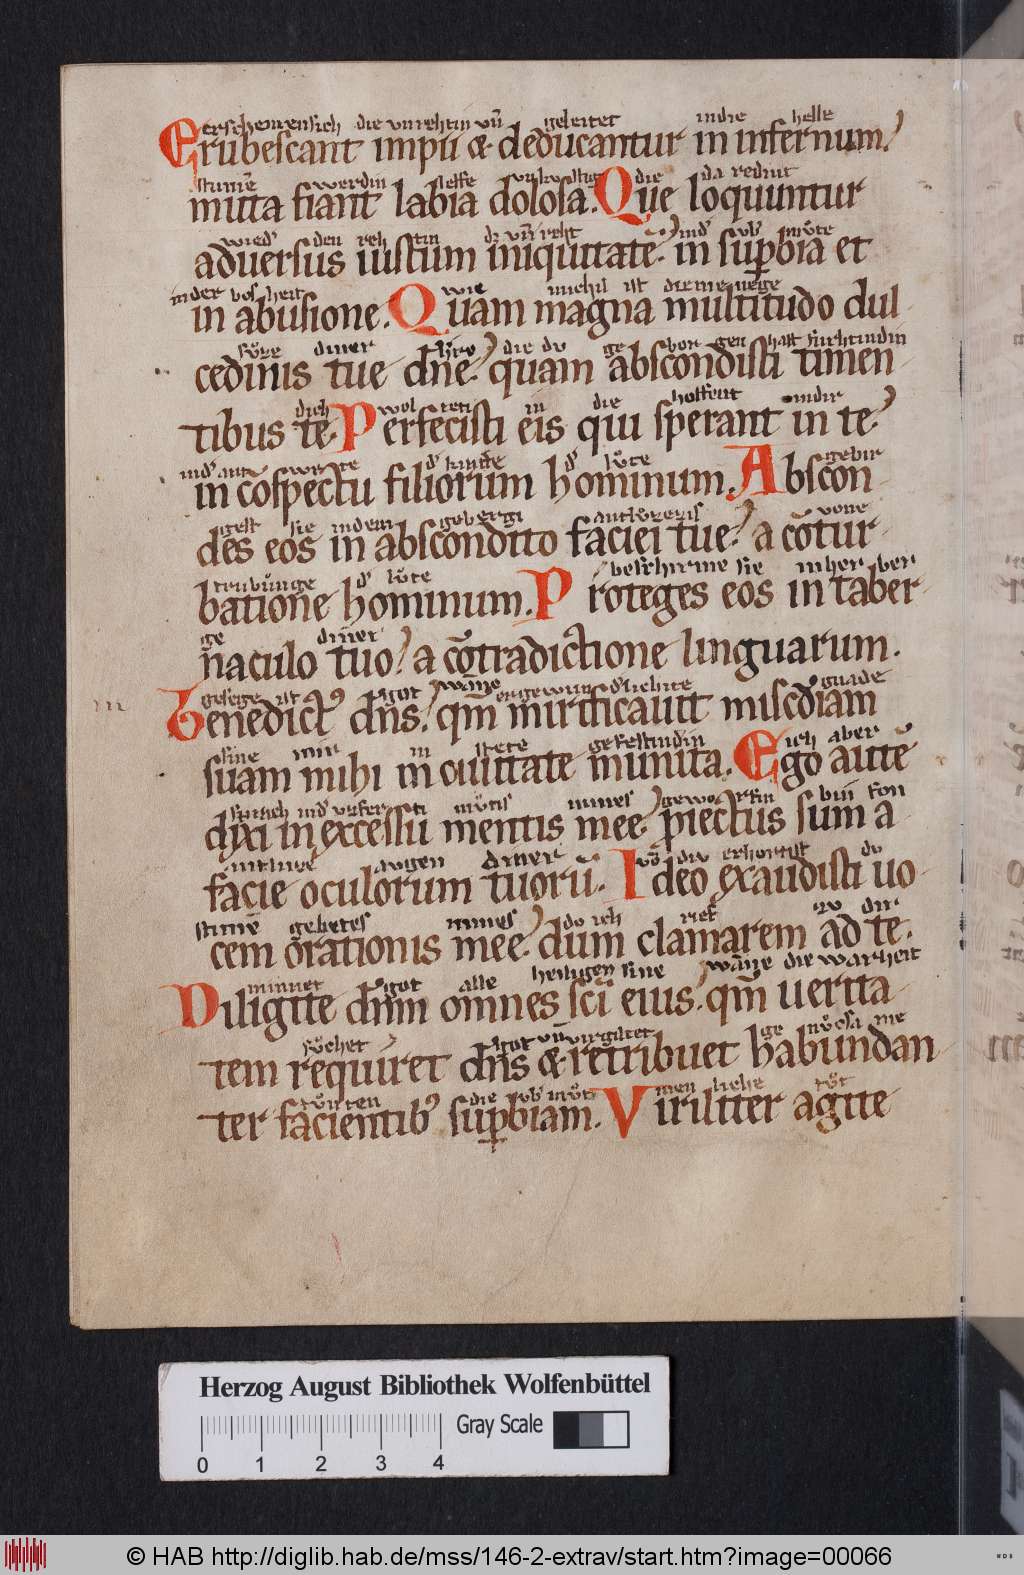 erschemensich die vnrehtin vn̄ geleitet indie helle
Erubescant impii & deducantur in infernum.
stum̄e werdin lefse die da redint
muta fiant labia dolosa. Que loquuntur
wied' den reh tin vn̄reht ind' vb' můte
aduersus iustum iniquitatē. in sup̄bia et
in der bos heit wie michil ist die menege
in abusione. Quam magna multitudo dul-
sůze diner h're die dv ge bor gen hast furhtindin
cedinis tue dn̄e. quam abscondisti timen-
dich wol teti in die hoffent indir
tibus te. Perfecisti eis qui sperant in te.
d' kinde d' lůte gebir
in cōspectu filiorum hominum. Abscon-
gest sie indem gebergi antlvzzis vone
des eos in abscondito faciei tue. a cōtur-
trubůnge d' lůte beschirme sie in her ber
batione hominum. Proteges eos in taber-
ge diner
naculo tuo. a cōtradictione linguarum.
gesege ist got wāze gnade
Benedict' dn̄s. qm̄ mirificauit miscdiam
sine mir in stete gefestindin ich aber
suam mihi in ciuitate munita. Ego autē
můtis mines gewo rfin bin fon
dixi in excessu mentis mee. piectus sum a
antluze augen diner erhortist dv
facie oculorum tuorū. Ideo exaudisti uo-
stim̄e gebetes mines do ich rief zv dir
cem orationis mee. dum clamarem ad te.
minnet got alle heiligen sine wāze die warheit
Diligite dnm omnes sci eius. qm̄ uerita-
sůchet got vn̄ virgiltet ge nůcsa me
tem requiret dn̄s & retribuet habundan-
tůn ten die vb' můt men liche tůt
ter facientib' sup̄biam. Viriliter agite
Herzog August Bibliothek Wolfenbüttel
Gray Scale
0 1 2 3 4
© HAB http://diglib.hab.de/mss/146-2-extrav/start.htm?image=00066